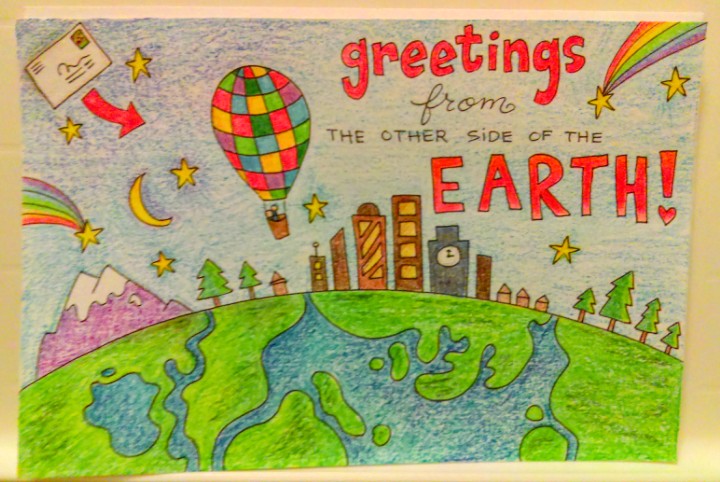 greetings
from
THE OTHER SiDE OF THE
EARTH!